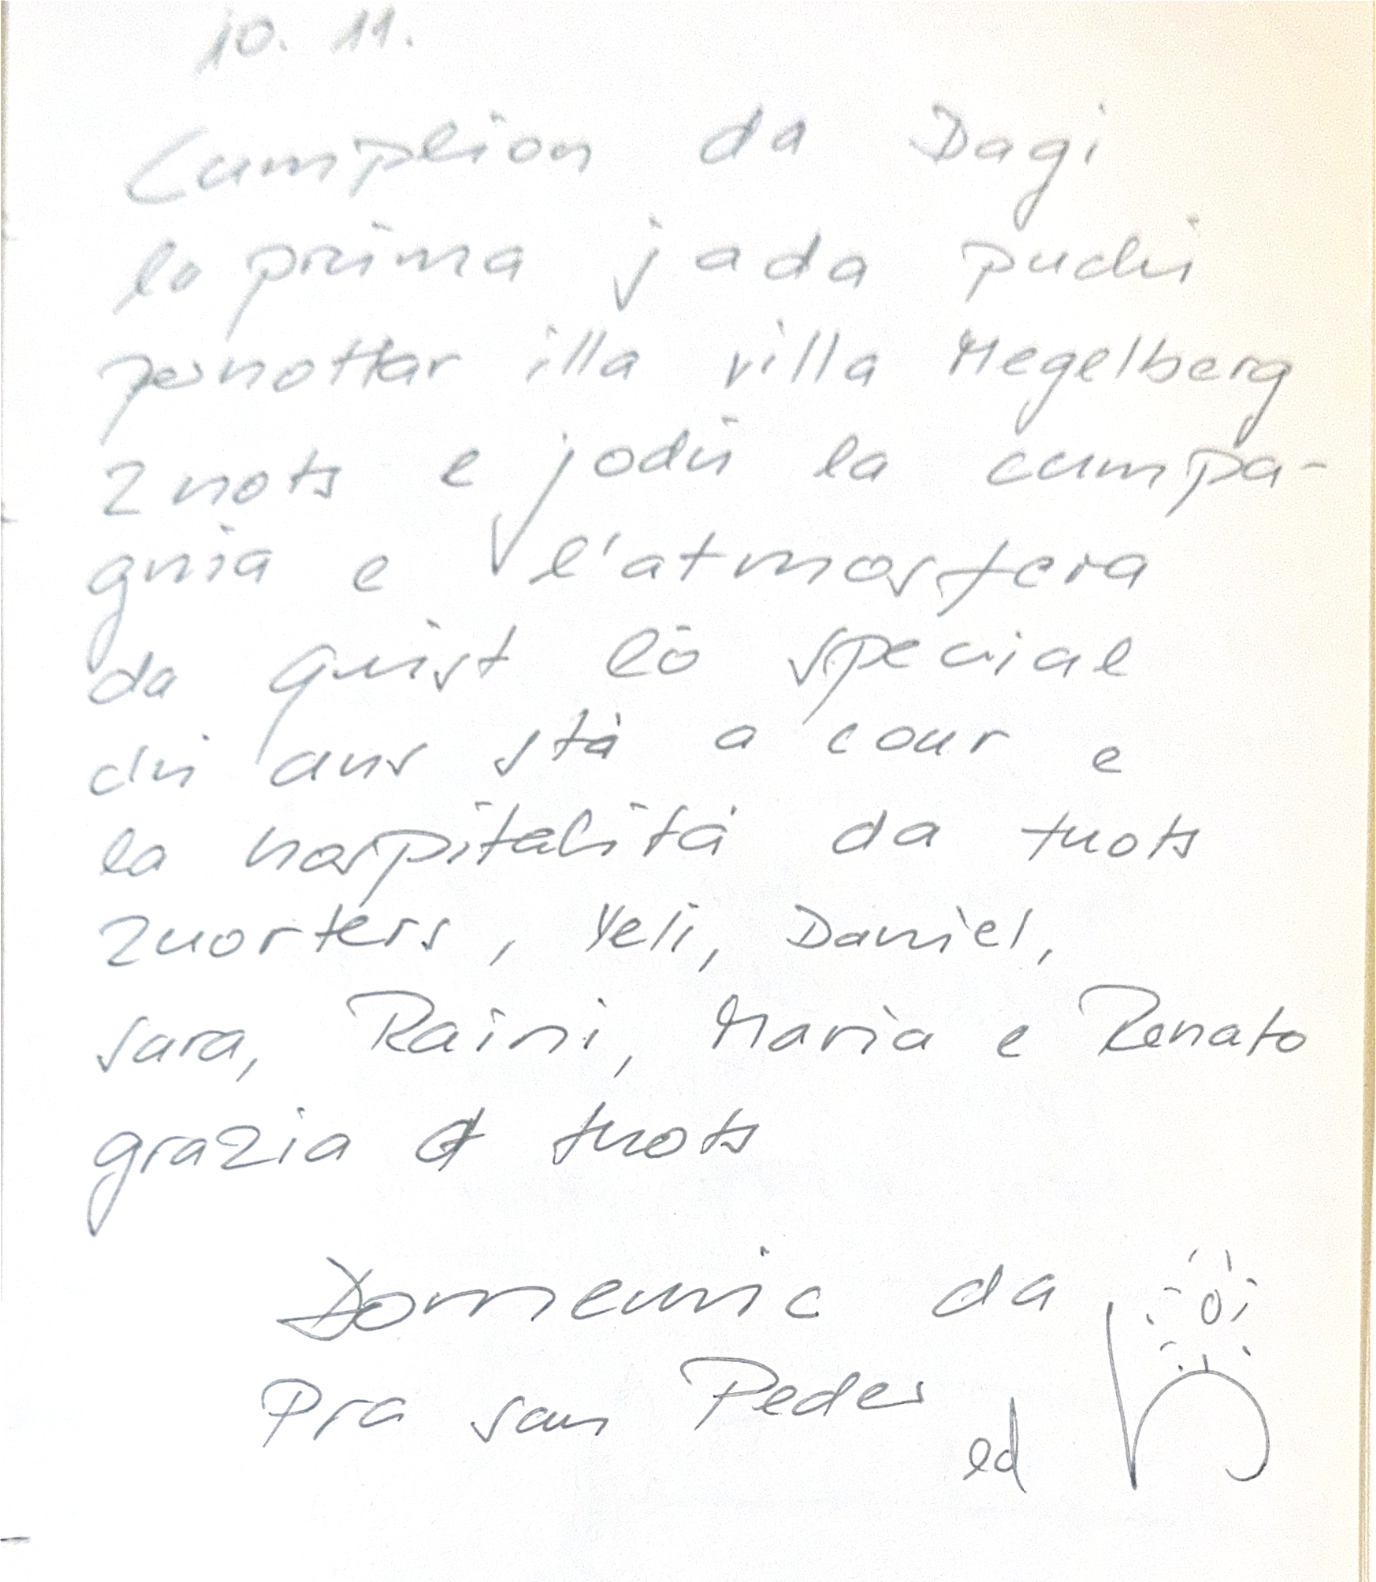 10. 11.
Cumplion da Dagi
la prima jada pudü
pernottar illa villa Megelberg
2 nots e jodü la cumpa-
gnia e l'atmosfera
da quist lö special
chi ans stà a cour e
la hospitalità da tuots
Zuorters, Yeli, Daniel,
Sara, Raini, Maria e Renato
grazia a tuots
Domenic da
Pra San Peder
ed